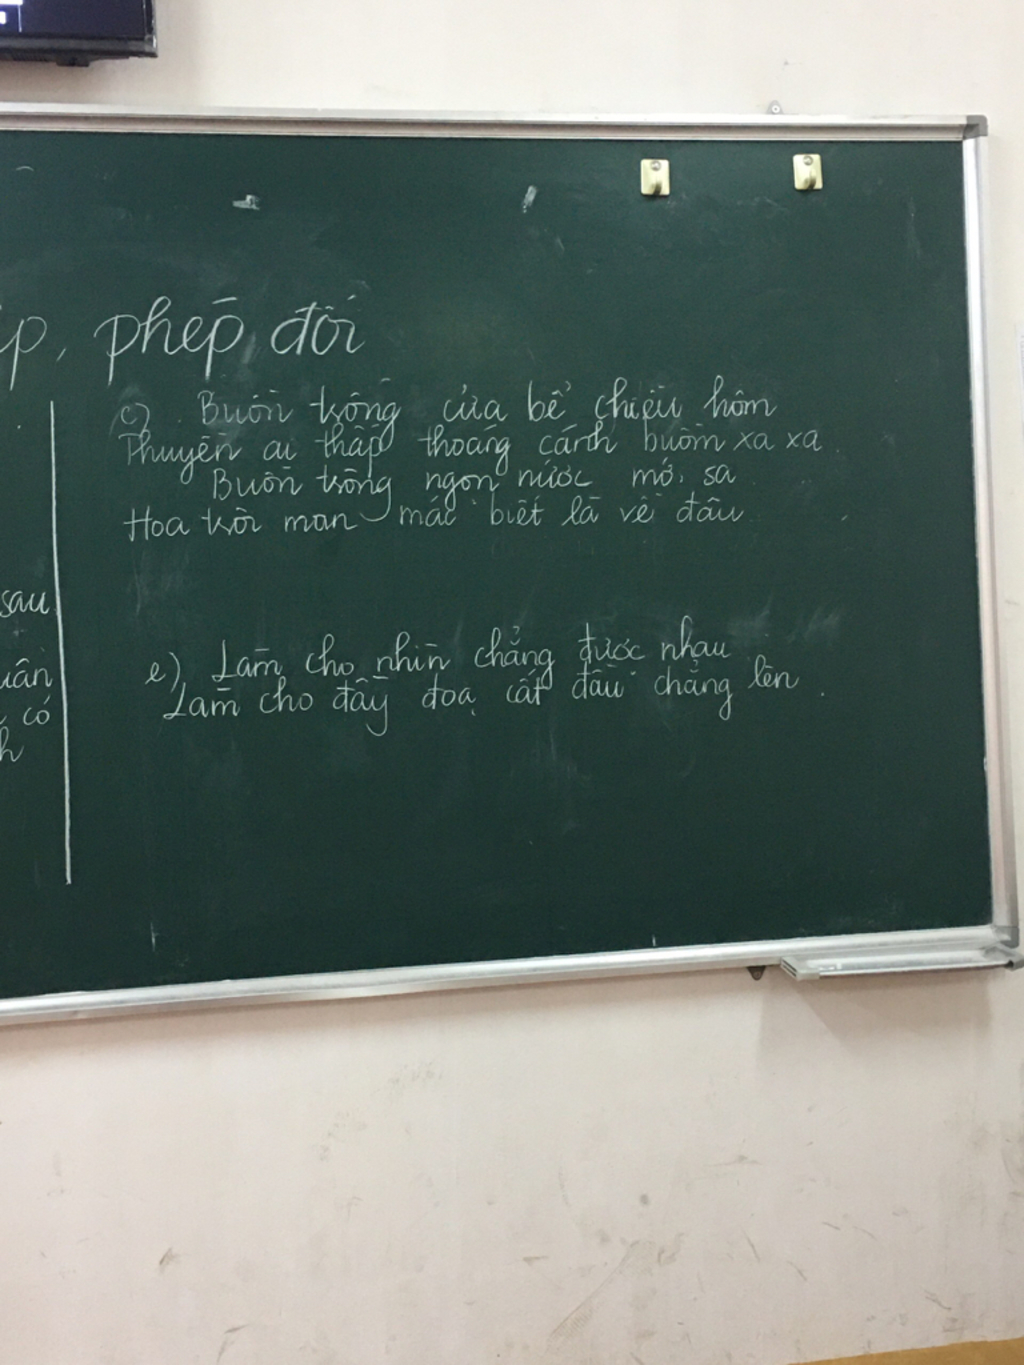 ip, phép đối
c) Buồn trông cửa bể chiều hôm
Thuyền ai thấp thoáng cánh buồm xa xa.
Buồn trông ngọn nước mới sa
Hoa trôi man mác biết là về đâu
sau
uân
có
h
e) Làm cho nhìn chẳng được nhau
Làm cho đầy đoạ cất đầu chẳng lên.